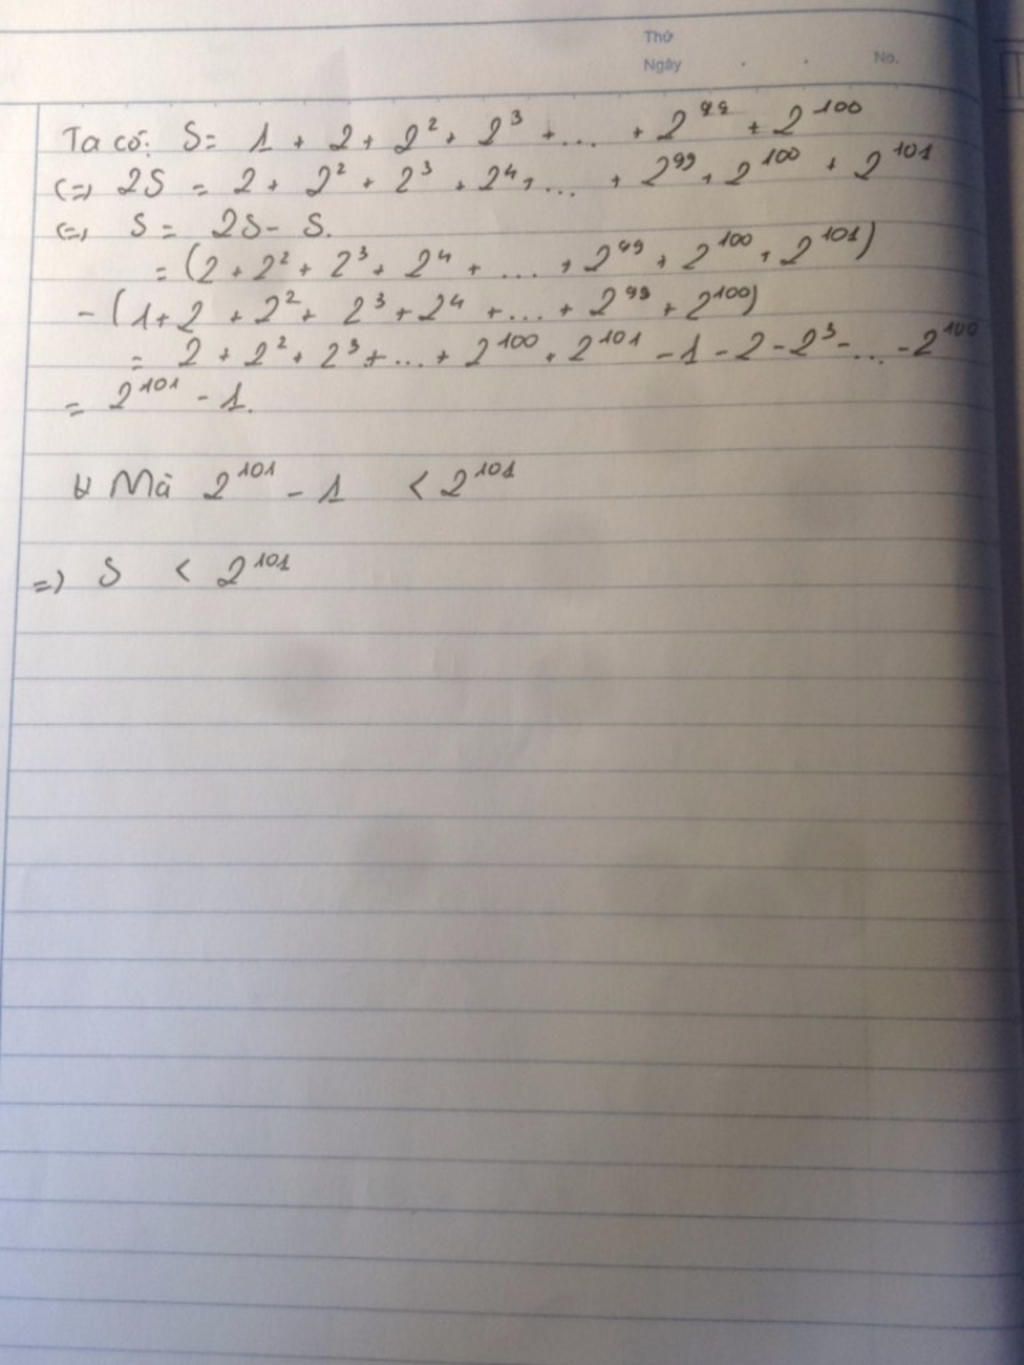 Thứ
Ngày . . No.
Ta có: S = 1 + 2 + 2² + 2³ + ... + 2⁹⁹ + 2¹⁰⁰
(=) 2S = 2 + 2² + 2³ + 2⁴ + ... + 2⁹⁹ + 2¹⁰⁰ + 2¹⁰¹
(=) S = 2S - S.
= (2 + 2² + 2³ + 2⁴ + ... + 2⁹⁹ + 2¹⁰⁰ + 2¹⁰¹)
- (1 + 2 + 2² + 2³ + 2⁴ + ... + 2⁹⁹ + 2¹⁰⁰)
= 2 + 2² + 2³ + ... + 2¹⁰⁰ + 2¹⁰¹ - 1 - 2 - 2³ - ... - 2¹⁰⁰
= 2¹⁰¹ - 1.
Mà 2¹⁰¹ - 1 < 2¹⁰¹
=) S < 2¹⁰¹